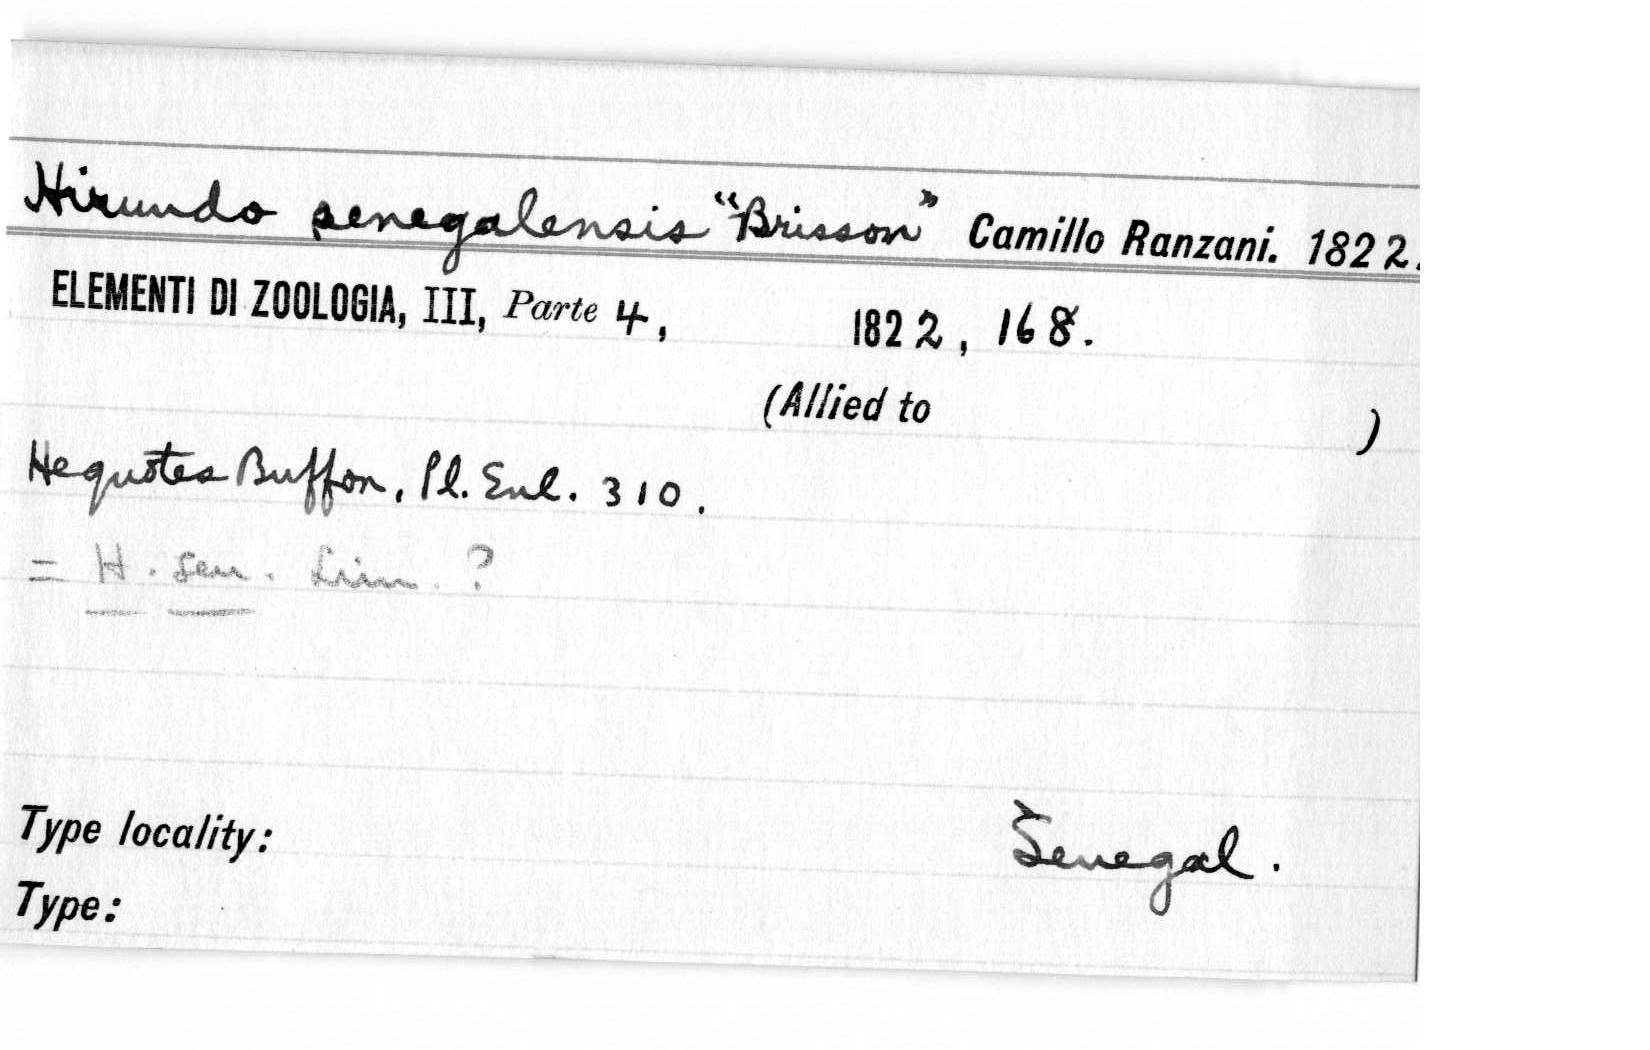 Hirundo senegalensis "Brisson" Camillo Ranzani. 1822.
ELEMENTI DI ZOOLOGIA, III, Parte 4, 1822, 168.
(Allied to )
He quotes Buffon, Pl. Enl. 310.
= H. sen. Linn. ?
Type locality: Senegal.
Type: